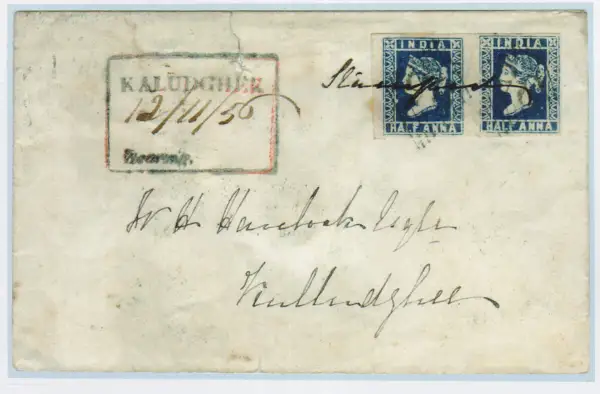 KALUDGHEE
12/11/56
Stamped
INDIA
HALF ANNA
INDIA
HALF ANNA
W H Havelock Esqre
Kulludghee